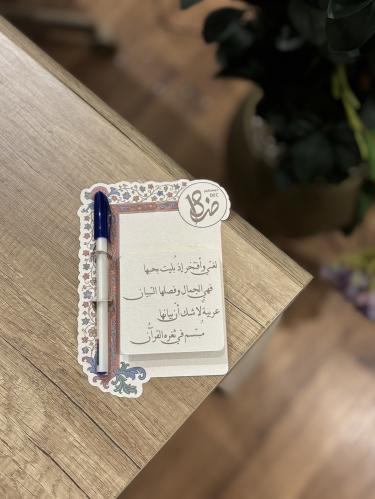 18 ض
DEC
لغتي وأفتخر إذ بُليت بحبها
فهي الجمال وفصلها التبيان
عربية لا شك أن بيانها
مُبتسم في ثغره القرآنُ